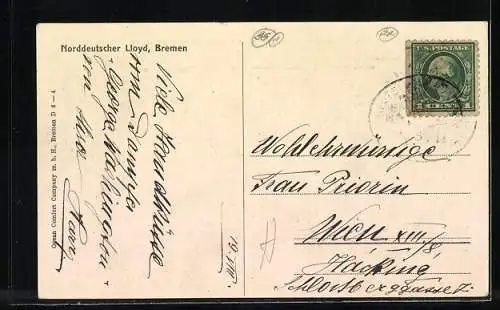 Norddeutscher Lloyd, Bremen
Ocean Comfort Company m. b. H., Bremen D 4 — 4
Viele Handküsse
vom Dampfer
George Washington
von
U.S. POSTAGE
Wohlehrwürdige
Frau Priorin
Wien XIII/8
Hacking
Schlossberggasse 7.